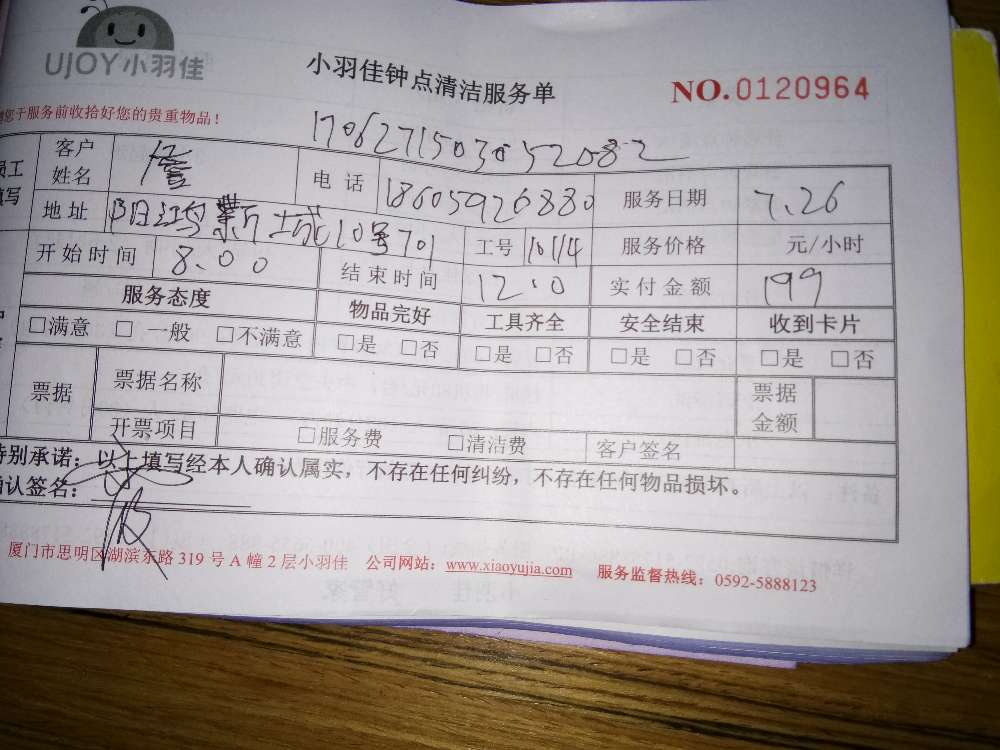 UJOY小羽佳
小羽佳钟点清洁服务单
NO.0120964
您于服务前收拾好您的贵重物品！
170627150305208 2
员工 填写
客户姓名 詹 电话 18605926880 服务日期 7.26
地址 阳鸿新城10号701 工号 10114 服务价格 元/小时
开始时间 8.00 结束时间 12.0 实付金额 199
服务态度 物品完好 工具齐全 安全结束 收到卡片
□满意 □一般 □不满意 □是 □否 □是 □否 □是 □否 □是 □否
票据 票据名称 票据金额
开票项目 □服务费 □清洁费 客户签名
特别承诺：以上填写经本人确认属实，不存在任何纠纷，不存在任何物品损坏。
确认签名：
厦门市思明区湖滨东路 319 号 A 幢 2 层小羽佳 公司网站：www.xiaoyujia.com 服务监督热线：0592-5888123